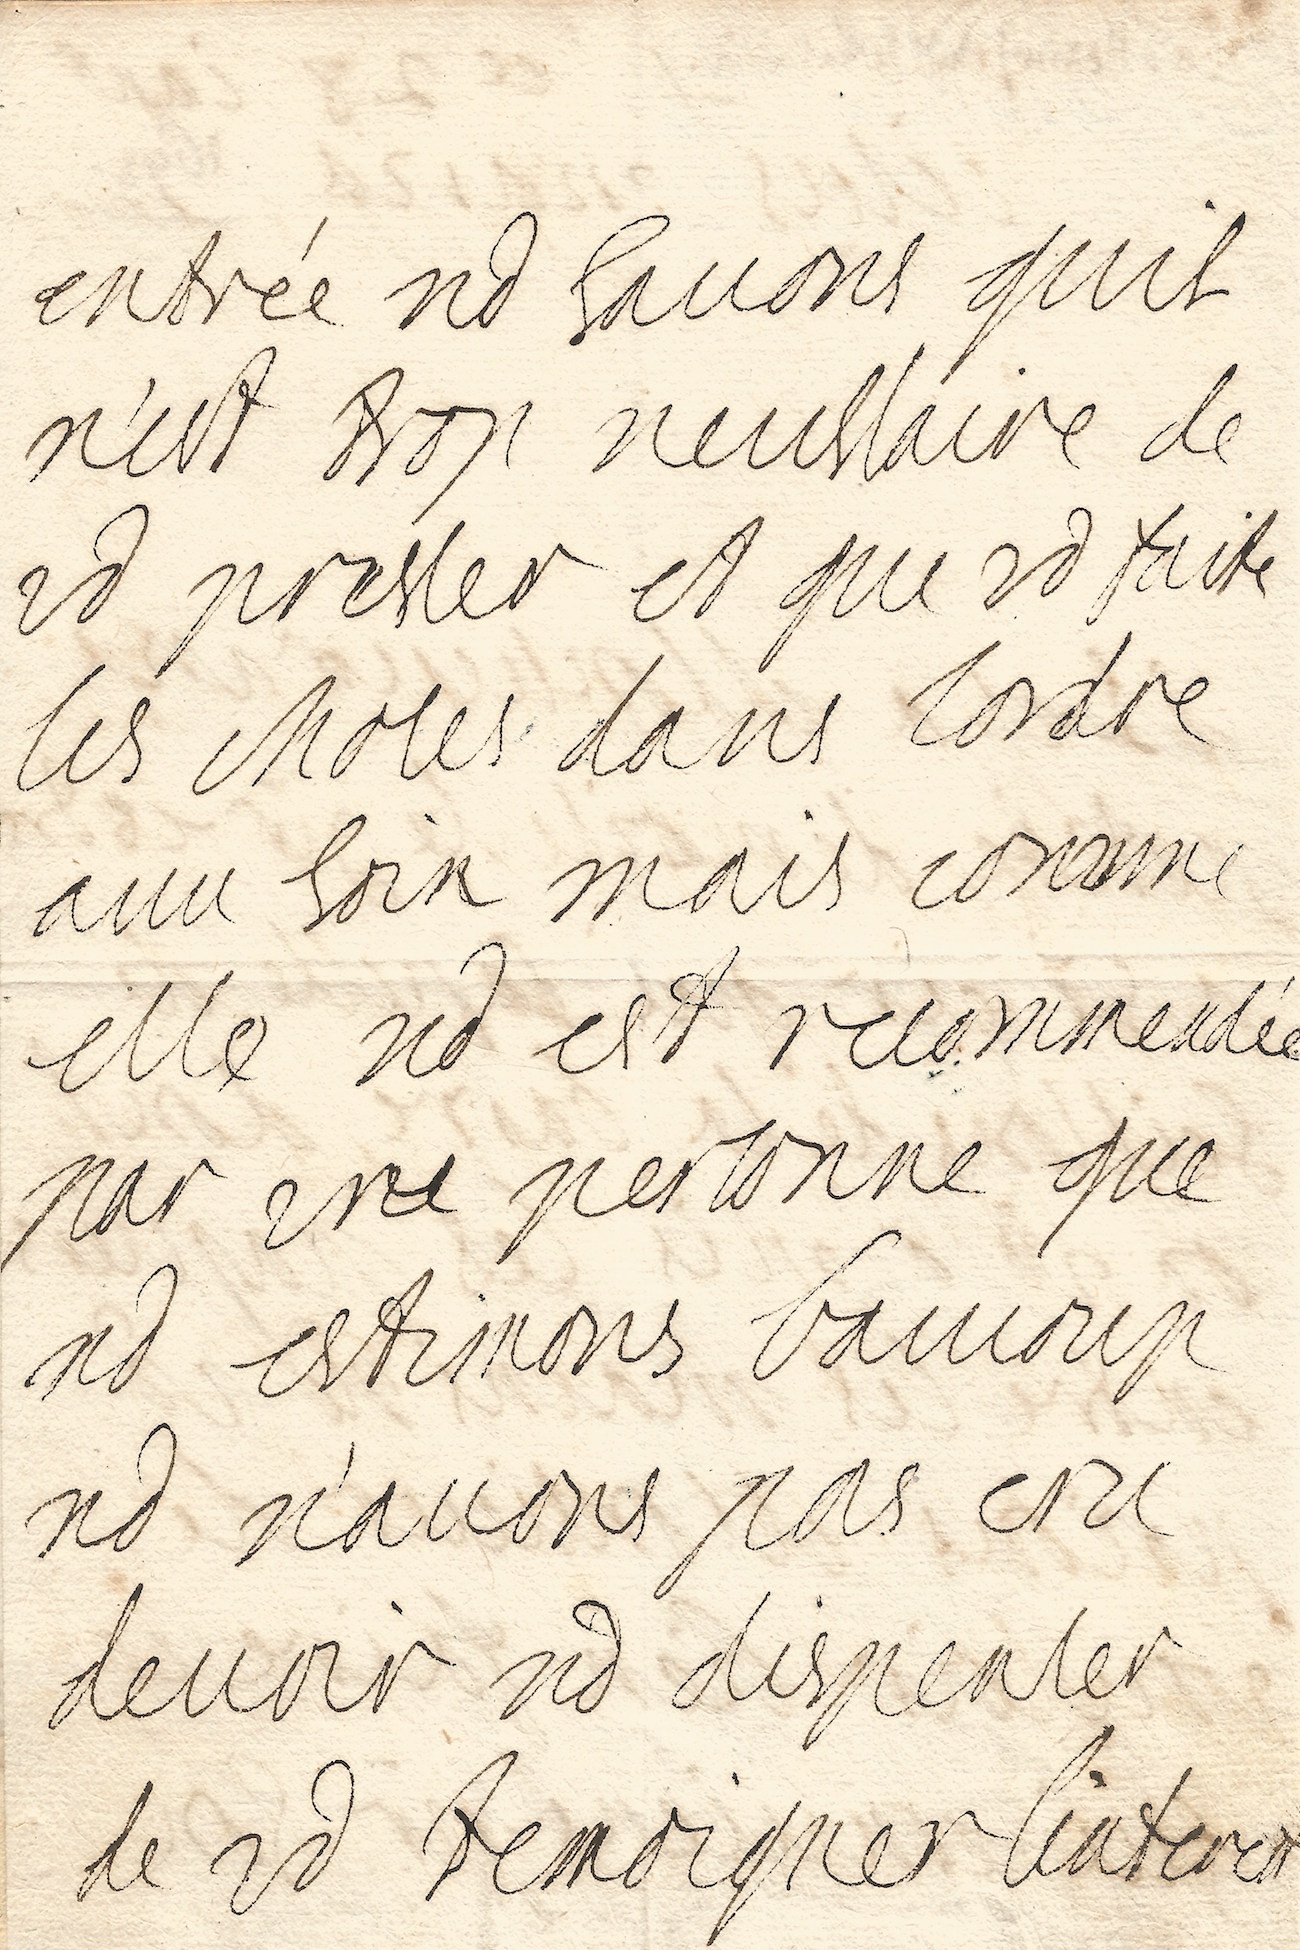 entrée nd sauons quil
n'est trop neussaire de
vd presser et que vd faite
les choses dans lordre
auec soin mais comme
elle nd est recommendée
par vne personne que
nd estimons baucoup
nd n'auons pas cru
deuoir nd dispenser
de vd temoigner l'interet